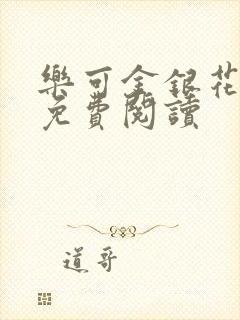 樂可金銀花
免費閱讀
道哥